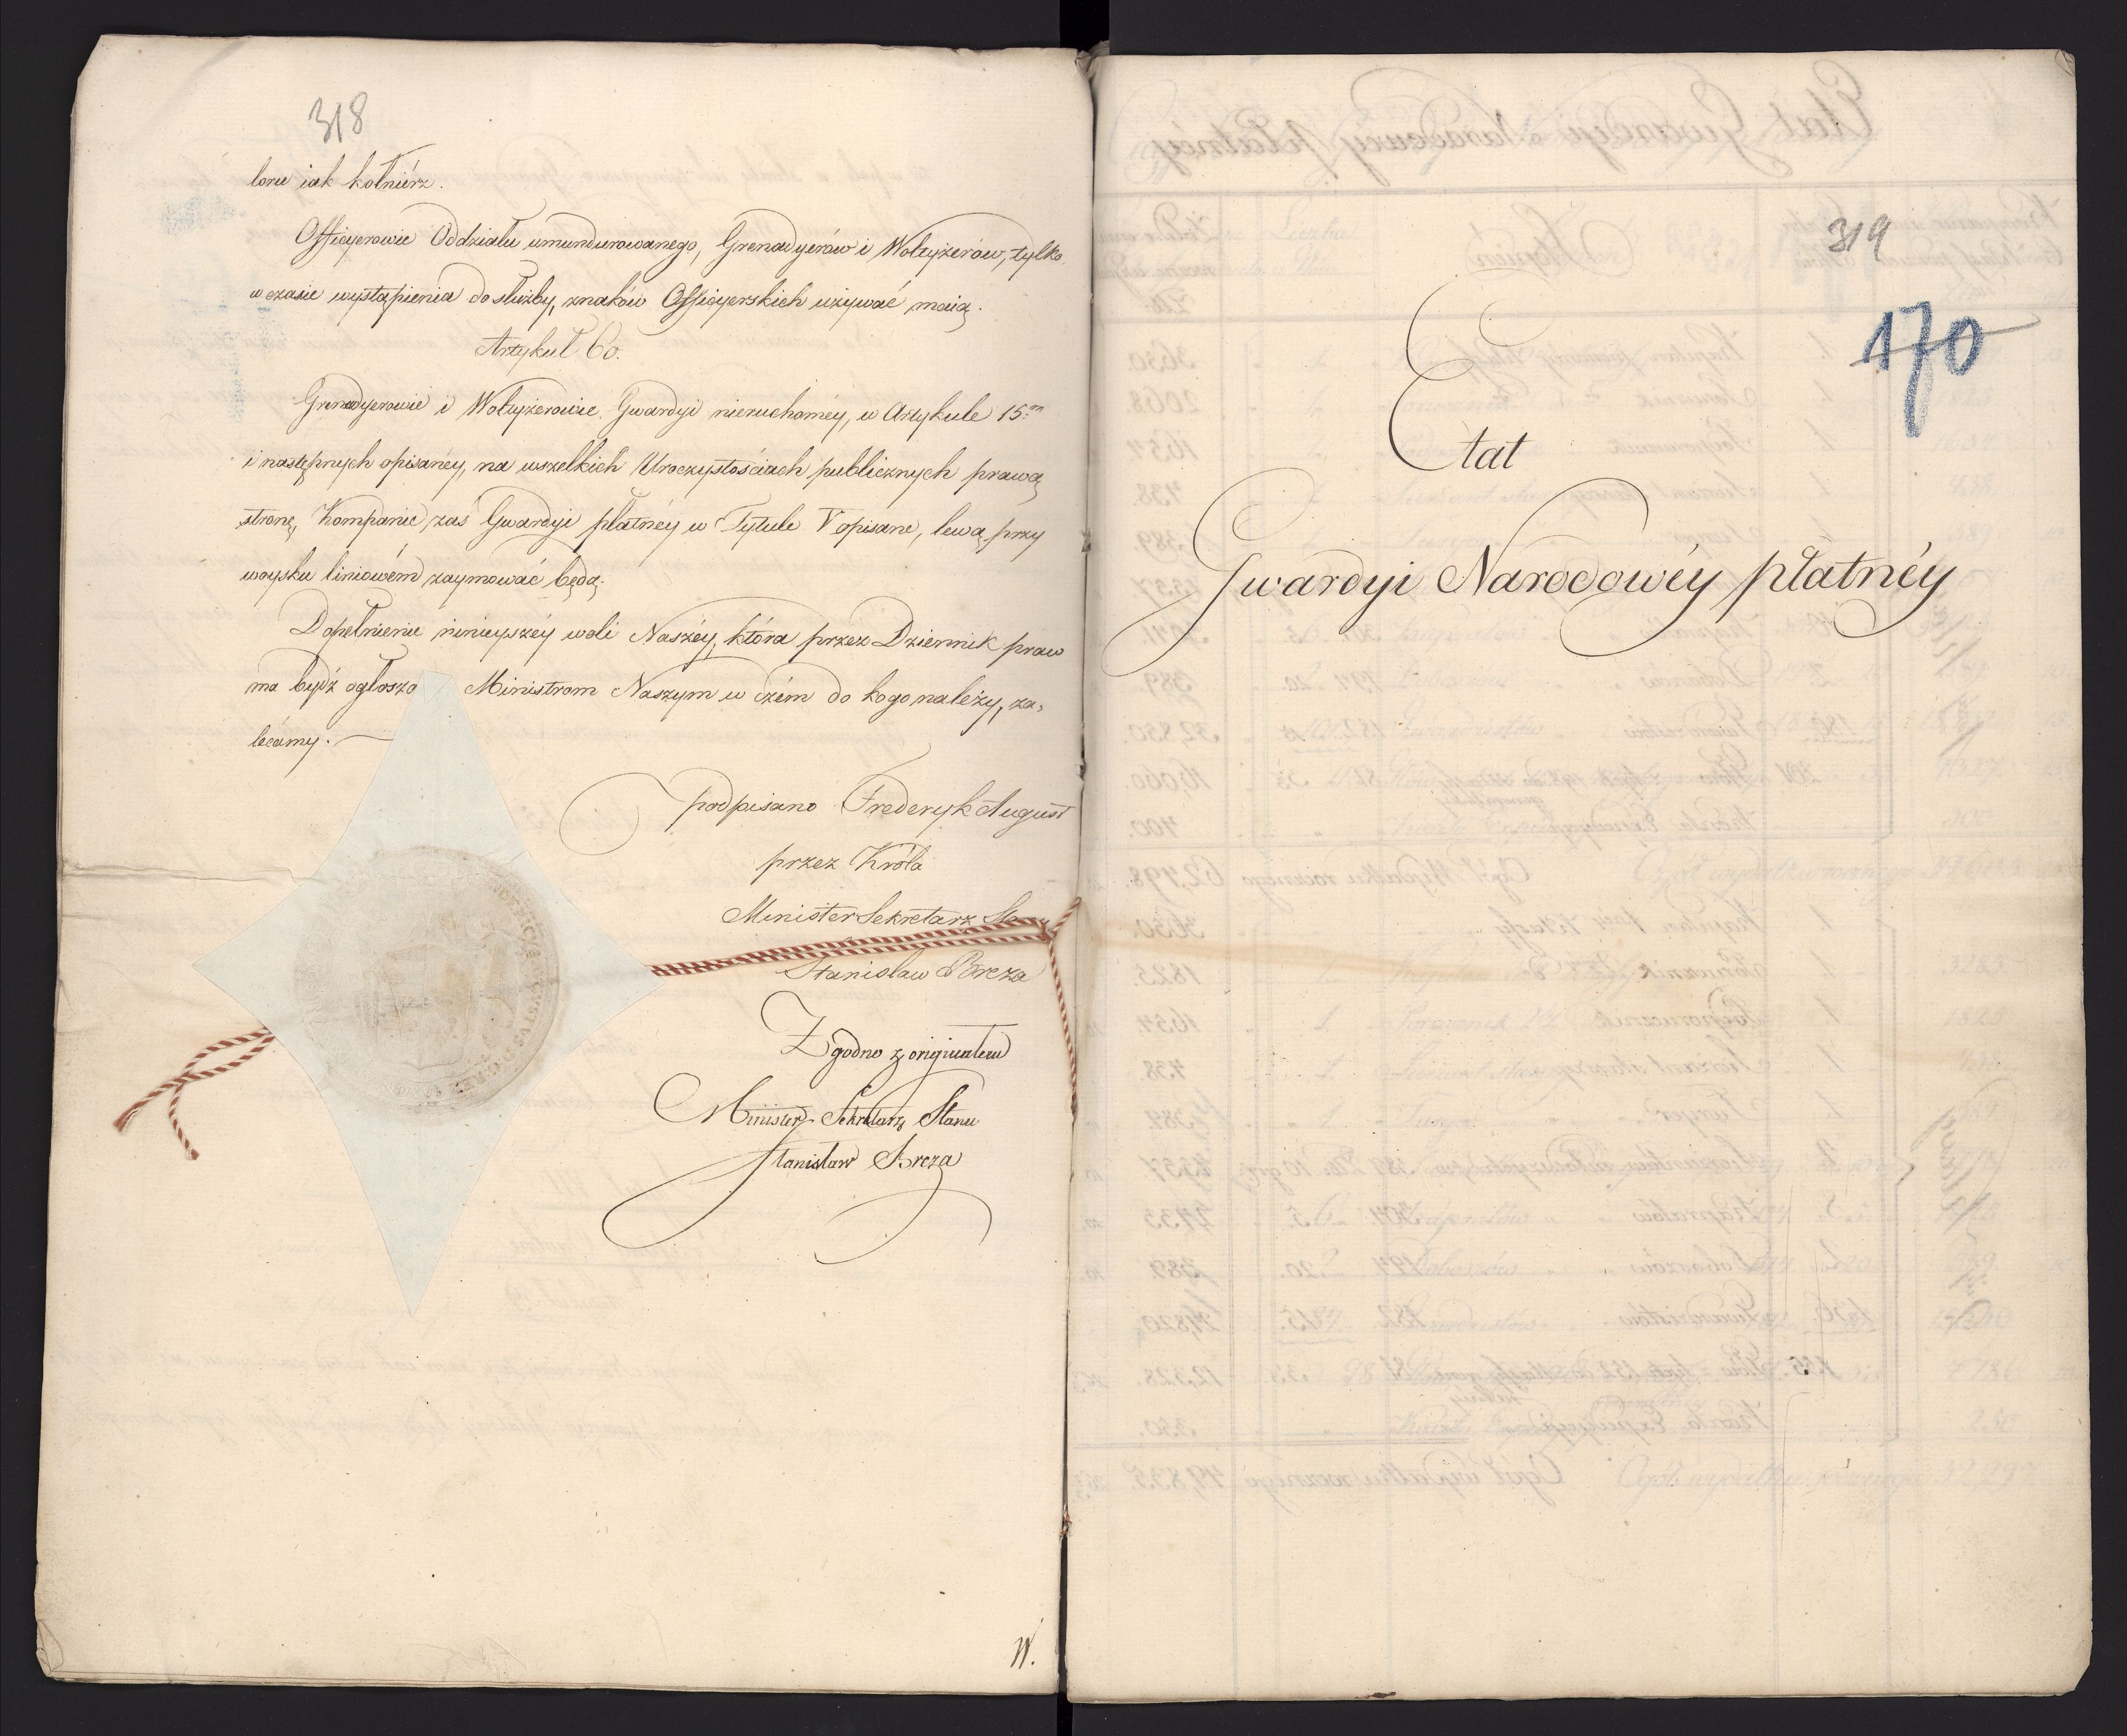 318
loru iak kołniérz.
Officyerowie Oddziału umundurowanego, Grenadyerów i Woltyżerów, tylko
w czasie wystąpienia do służby, znaków Officyerskich używać maią.
Artykuł 60.
Grenadyerowie i Woltyżerowie Gwardyi nieruchoméy, w Artykule 15.m
i następnych opisanéy, na wszelkich Uroczystościach publicznych prawą
stronę, Kompanie zaś Gwardyi płatnéy w Tytule V opisane, lewą przy
woysku liniowém zaymować będą.
Dopełnienie ninieyszéy woli Naszéy, która przez Dziennik praw
ma bydź ogłoszo Ministrom Naszym w czém do kogo należy, za-
lécamy.
podpisano Frederyk August
przez Króla
Minister Sekretarz
Stanisław Breza
Zgodno z originałem
Minister Sekretarz Stanu
Stanisław Breza
W.
319
170
Etat
Gwardyi Narodowéy płatnéy